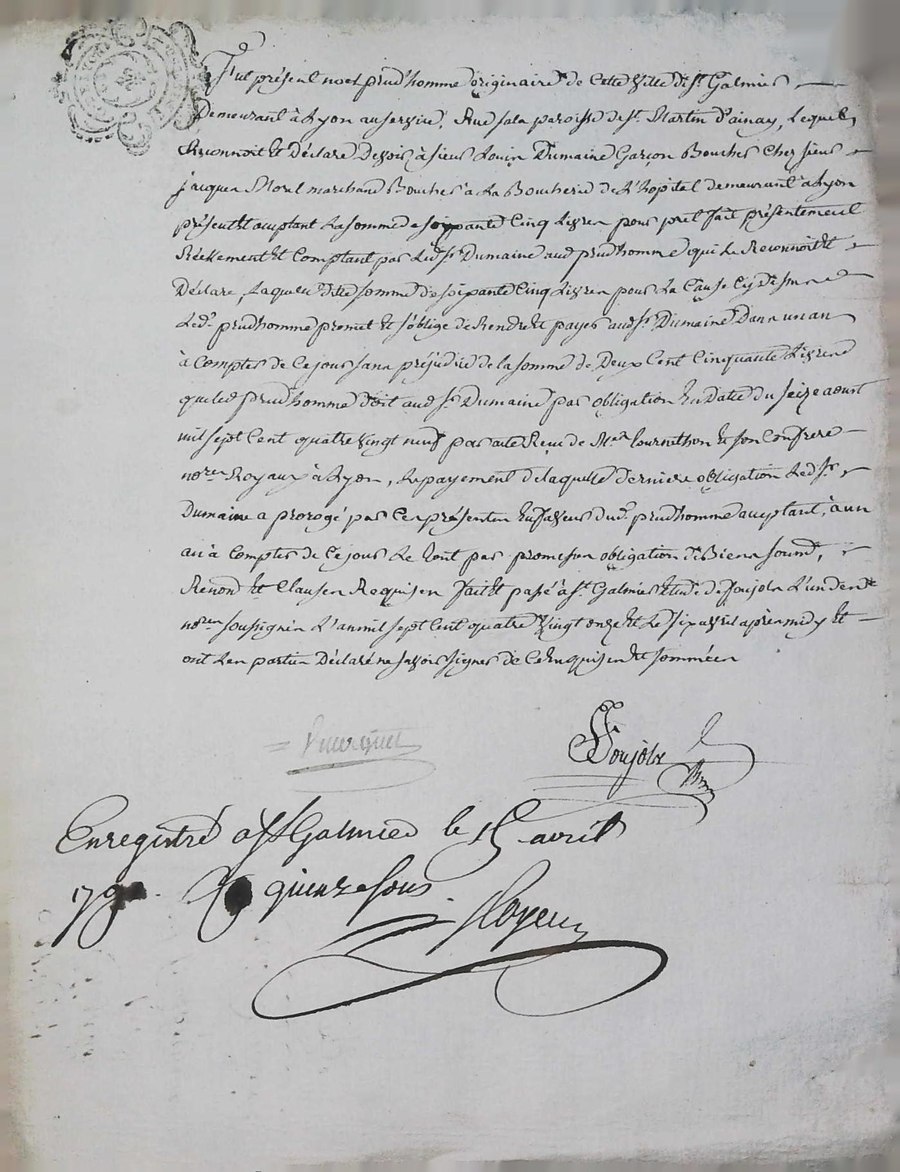 Fut présent noel prud'homme originaire de Cette Ville de st. Galmier
Demeurant à Lyon au service, Rue sala paroisse de st. Martin d'ainay, Lequel,
Reconnoit et Déclare Devoir à sieur Louis Dumaine Garçon Boucher Chez sieur
jacques Morel marchand Boucher à La Boucherie de L'hopital demeurant à Lyon
présent et aceptant La somme de soixante Cinq Livres pour prêt fait présentement
Réelement et Comptant par Led. sr. Dumaine aud prud'homme qui Le Reconnoit et
Déclare, Laquelle ditte somme de soixante Cinq Livres pour La Cause Cy dessus
Led. prud'homme promet et s'oblige de Rendre et payer aud sr. Dumaine Dans un an
à Compter de Ce jour sans préjudice de la somme de Deux Cent Cinquante Livres
que led prud'homme doit aud sr. Dumaine par obligation En Date du seize aoust
mil sept Cent quatre vingt neuf par acte Recu de Me. tournilhon et son Confrere
nores Royaux à Lyon, Le payement de laquelle derniere obligation Led sr.
Dumaine a prorogé par Ces présentes En faveur dud. prud'homme aceptant, à un
an à Compter de Ce jour Le tout par promesses obligation de Biens soumd.
Renond. et Clauses Requises fait et passé à st. Galmier Etude de soujols L'un des
nores soussignés L'an mil sept Cent quatre vingt onze et Le six avril après midy et
ont Les parties Déclaré ne savoir signer de Ce Enquises et sommées
Soujols
Enregistré a st Galmier le 15 avril
179 quinze sous